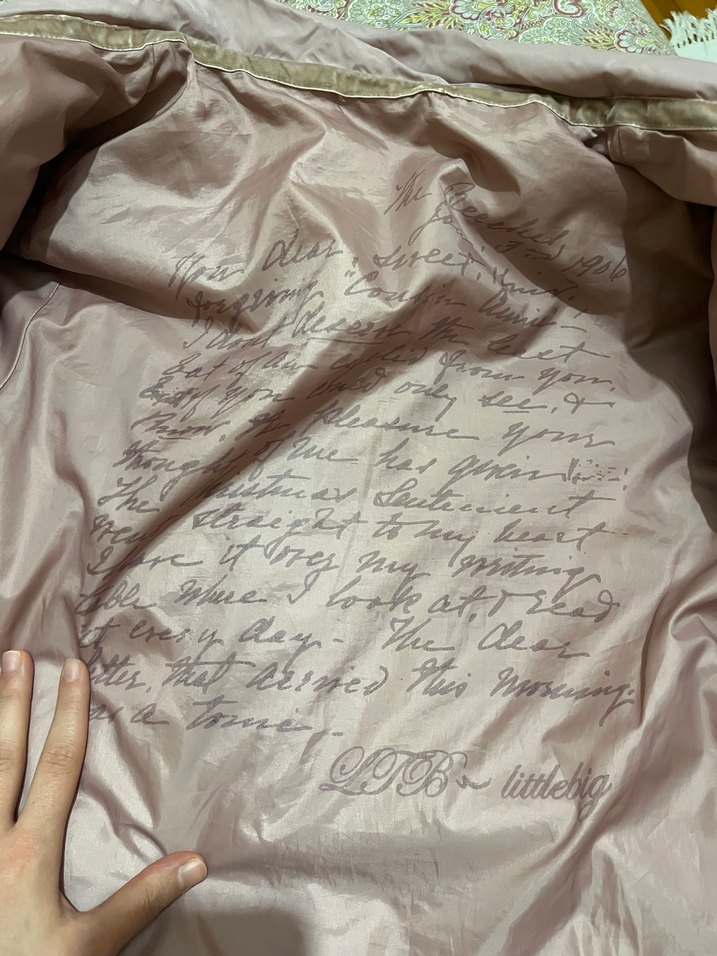 The
Jan. 3rd 1906
Your dear, sweet, kind,
forgiving "Cousin Annie –
I don't deserve the least
bat of an eyelid from you,
But if you could only see, &
know, the pleasure your
thought of me has given
The Christmas Sentiment
went straight to my heart
I have it over my writing
table where I look at, & read
it every day – The dear
letter, that arrived this morning,
as a tonic –
LTB ~ littlebig